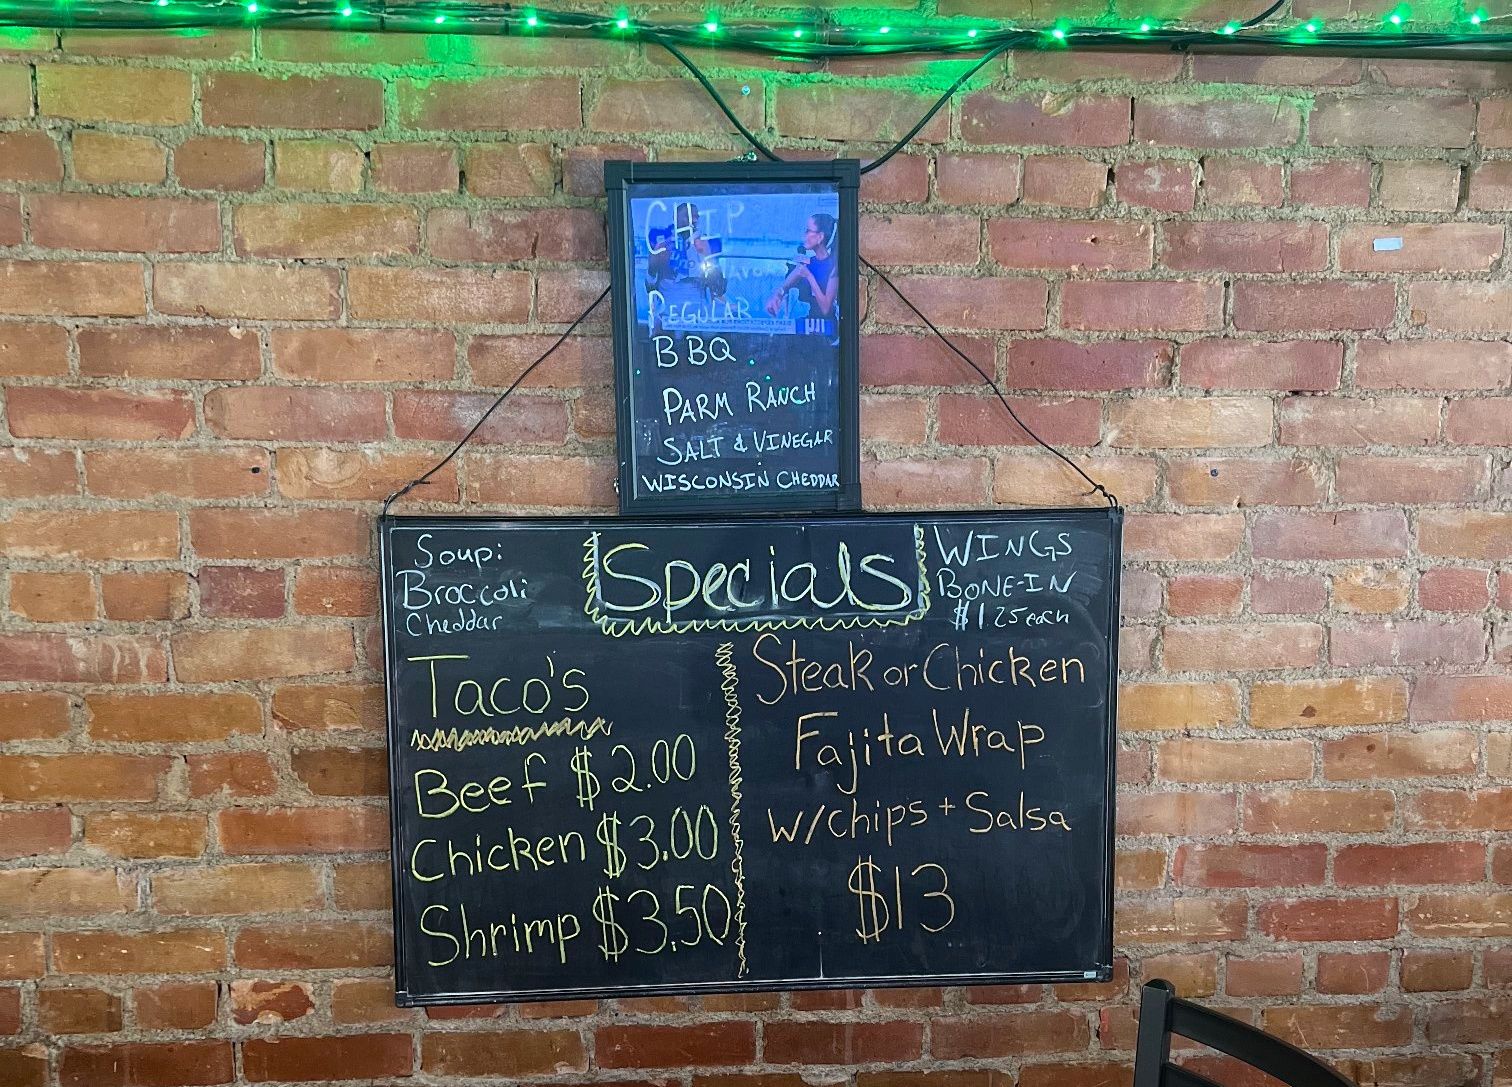 CHIP
FLAVORS
REGULAR
BBQ
PARM RANCH
SALT & VINEGAR
WISCONSIN CHEDDAR
Soup:
Broccoli
Cheddar
Specials
WINGS
BONE-IN
$1.25 each
Taco's
Beef $2.00
Chicken $3.00
Shrimp $3.50
Steak or Chicken
Fajita Wrap
w/chips + Salsa
$13